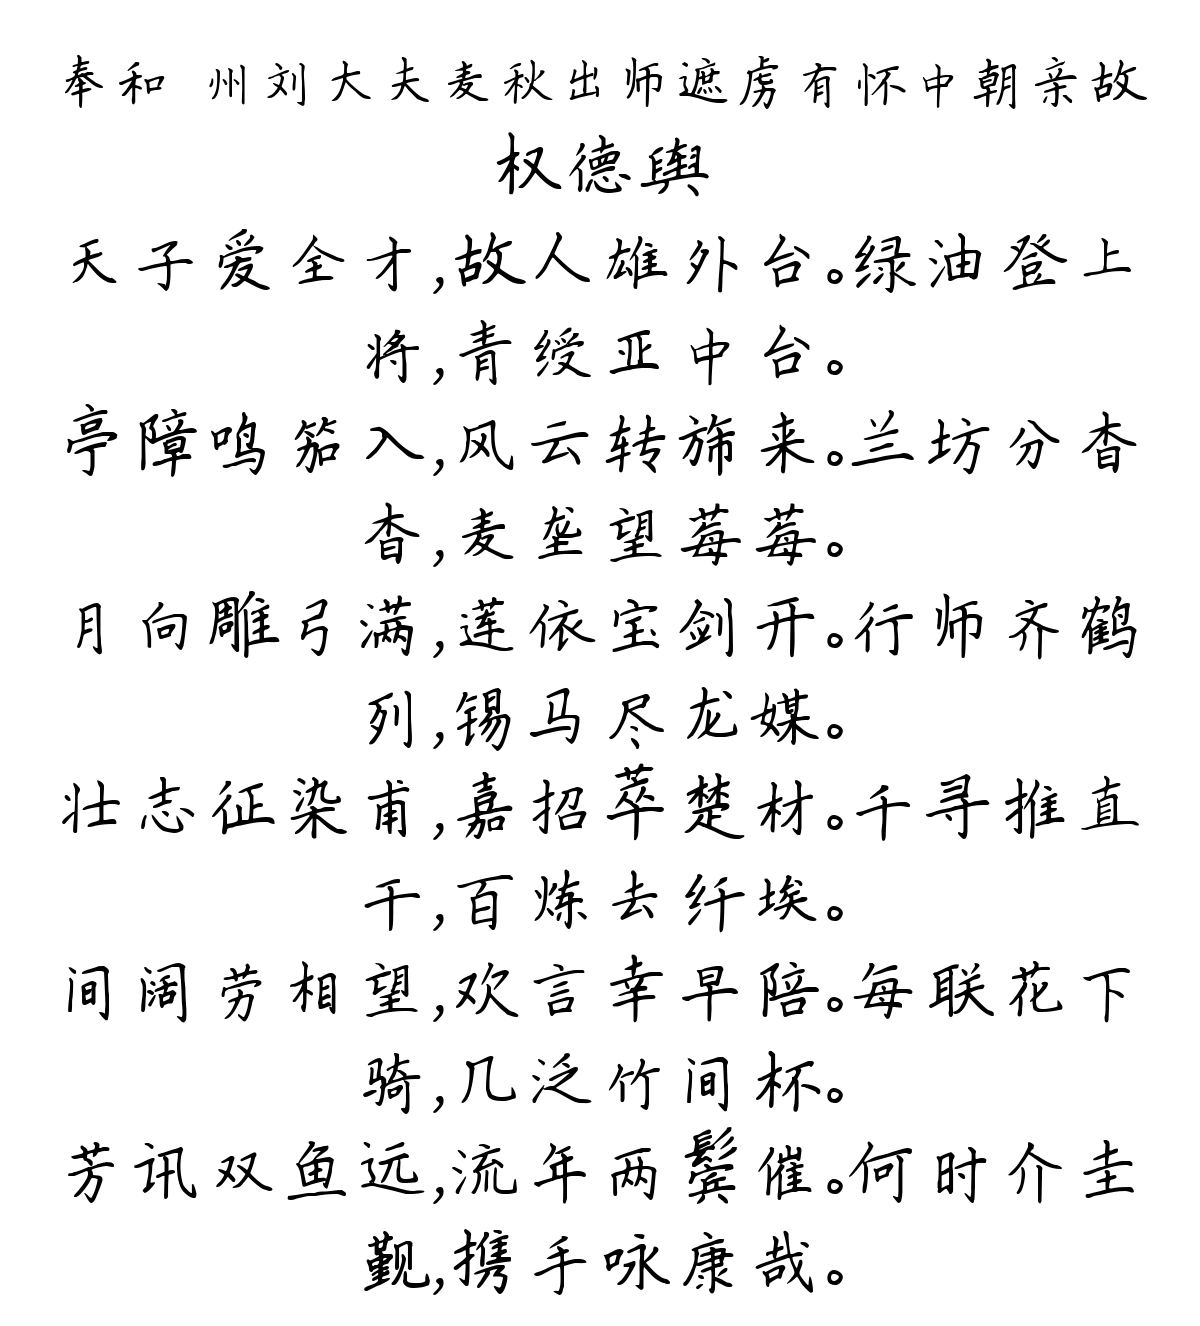 奉和 州刘大夫麦秋出师遮虏有怀中朝亲故
权德舆
天子爱全才,故人雄外台。绿油登上
将,青绶亚中台。
亭障鸣笳入,风云转旆来。兰坊分杳
杳,麦垄望莓莓。
月向雕弓满,莲依宝剑开。行师齐鹤
列,锡马尽龙媒。
壮志征染甫,嘉招萃楚材。千寻推直
干,百炼去纤埃。
间阔劳相望,欢言幸早陪。每联花下
骑,几泛竹间杯。
芳讯双鱼远,流年两鬓催。何时介圭
觐,携手咏康哉。